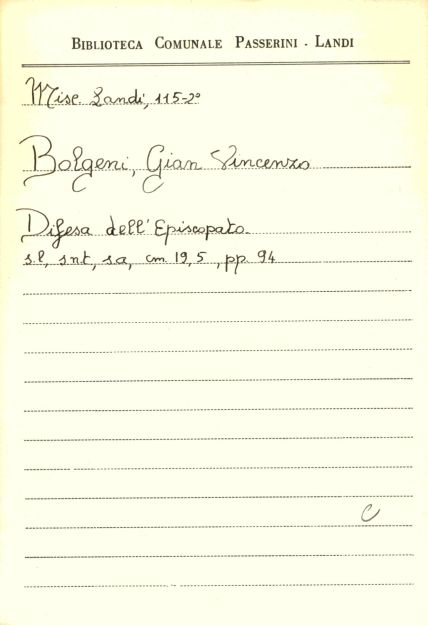 BIBLIOTECA COMUNALE PASSERINI - LANDI
Misc. Landi, 115-2º
Bolgeni, Gian Vincenzo
Difesa dell'Episcopato.
s.l, s.n.t, s.a, cm. 19,5, pp. 94
C